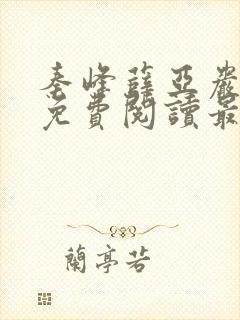 秦峰薛亞嚴
免費閱讀最
蘭亭若